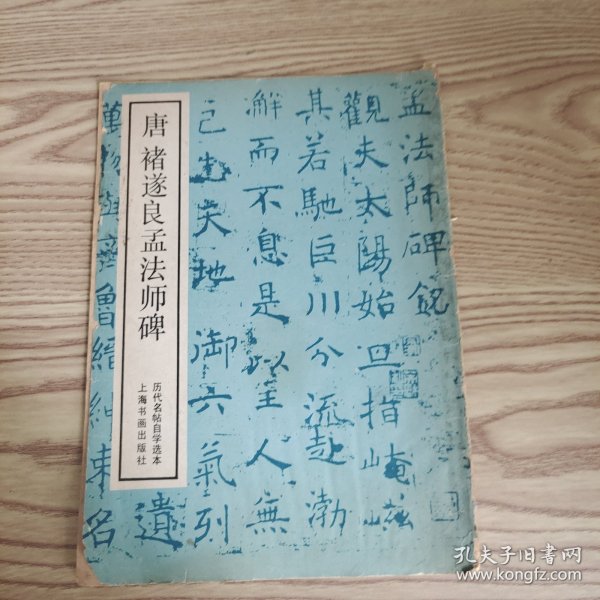 唐 褚遂良孟法师碑
历代名帖自学选本
上海书画出版社
孟法師碑銘
觀夫太陽始旦指崦嵫
其若馳巨川分流赴渤
澥而不息是以至人無
己達天地御六氣列
遺
萬物與齊魯縉紳束名
孔夫子旧书网
www.kongfz.com